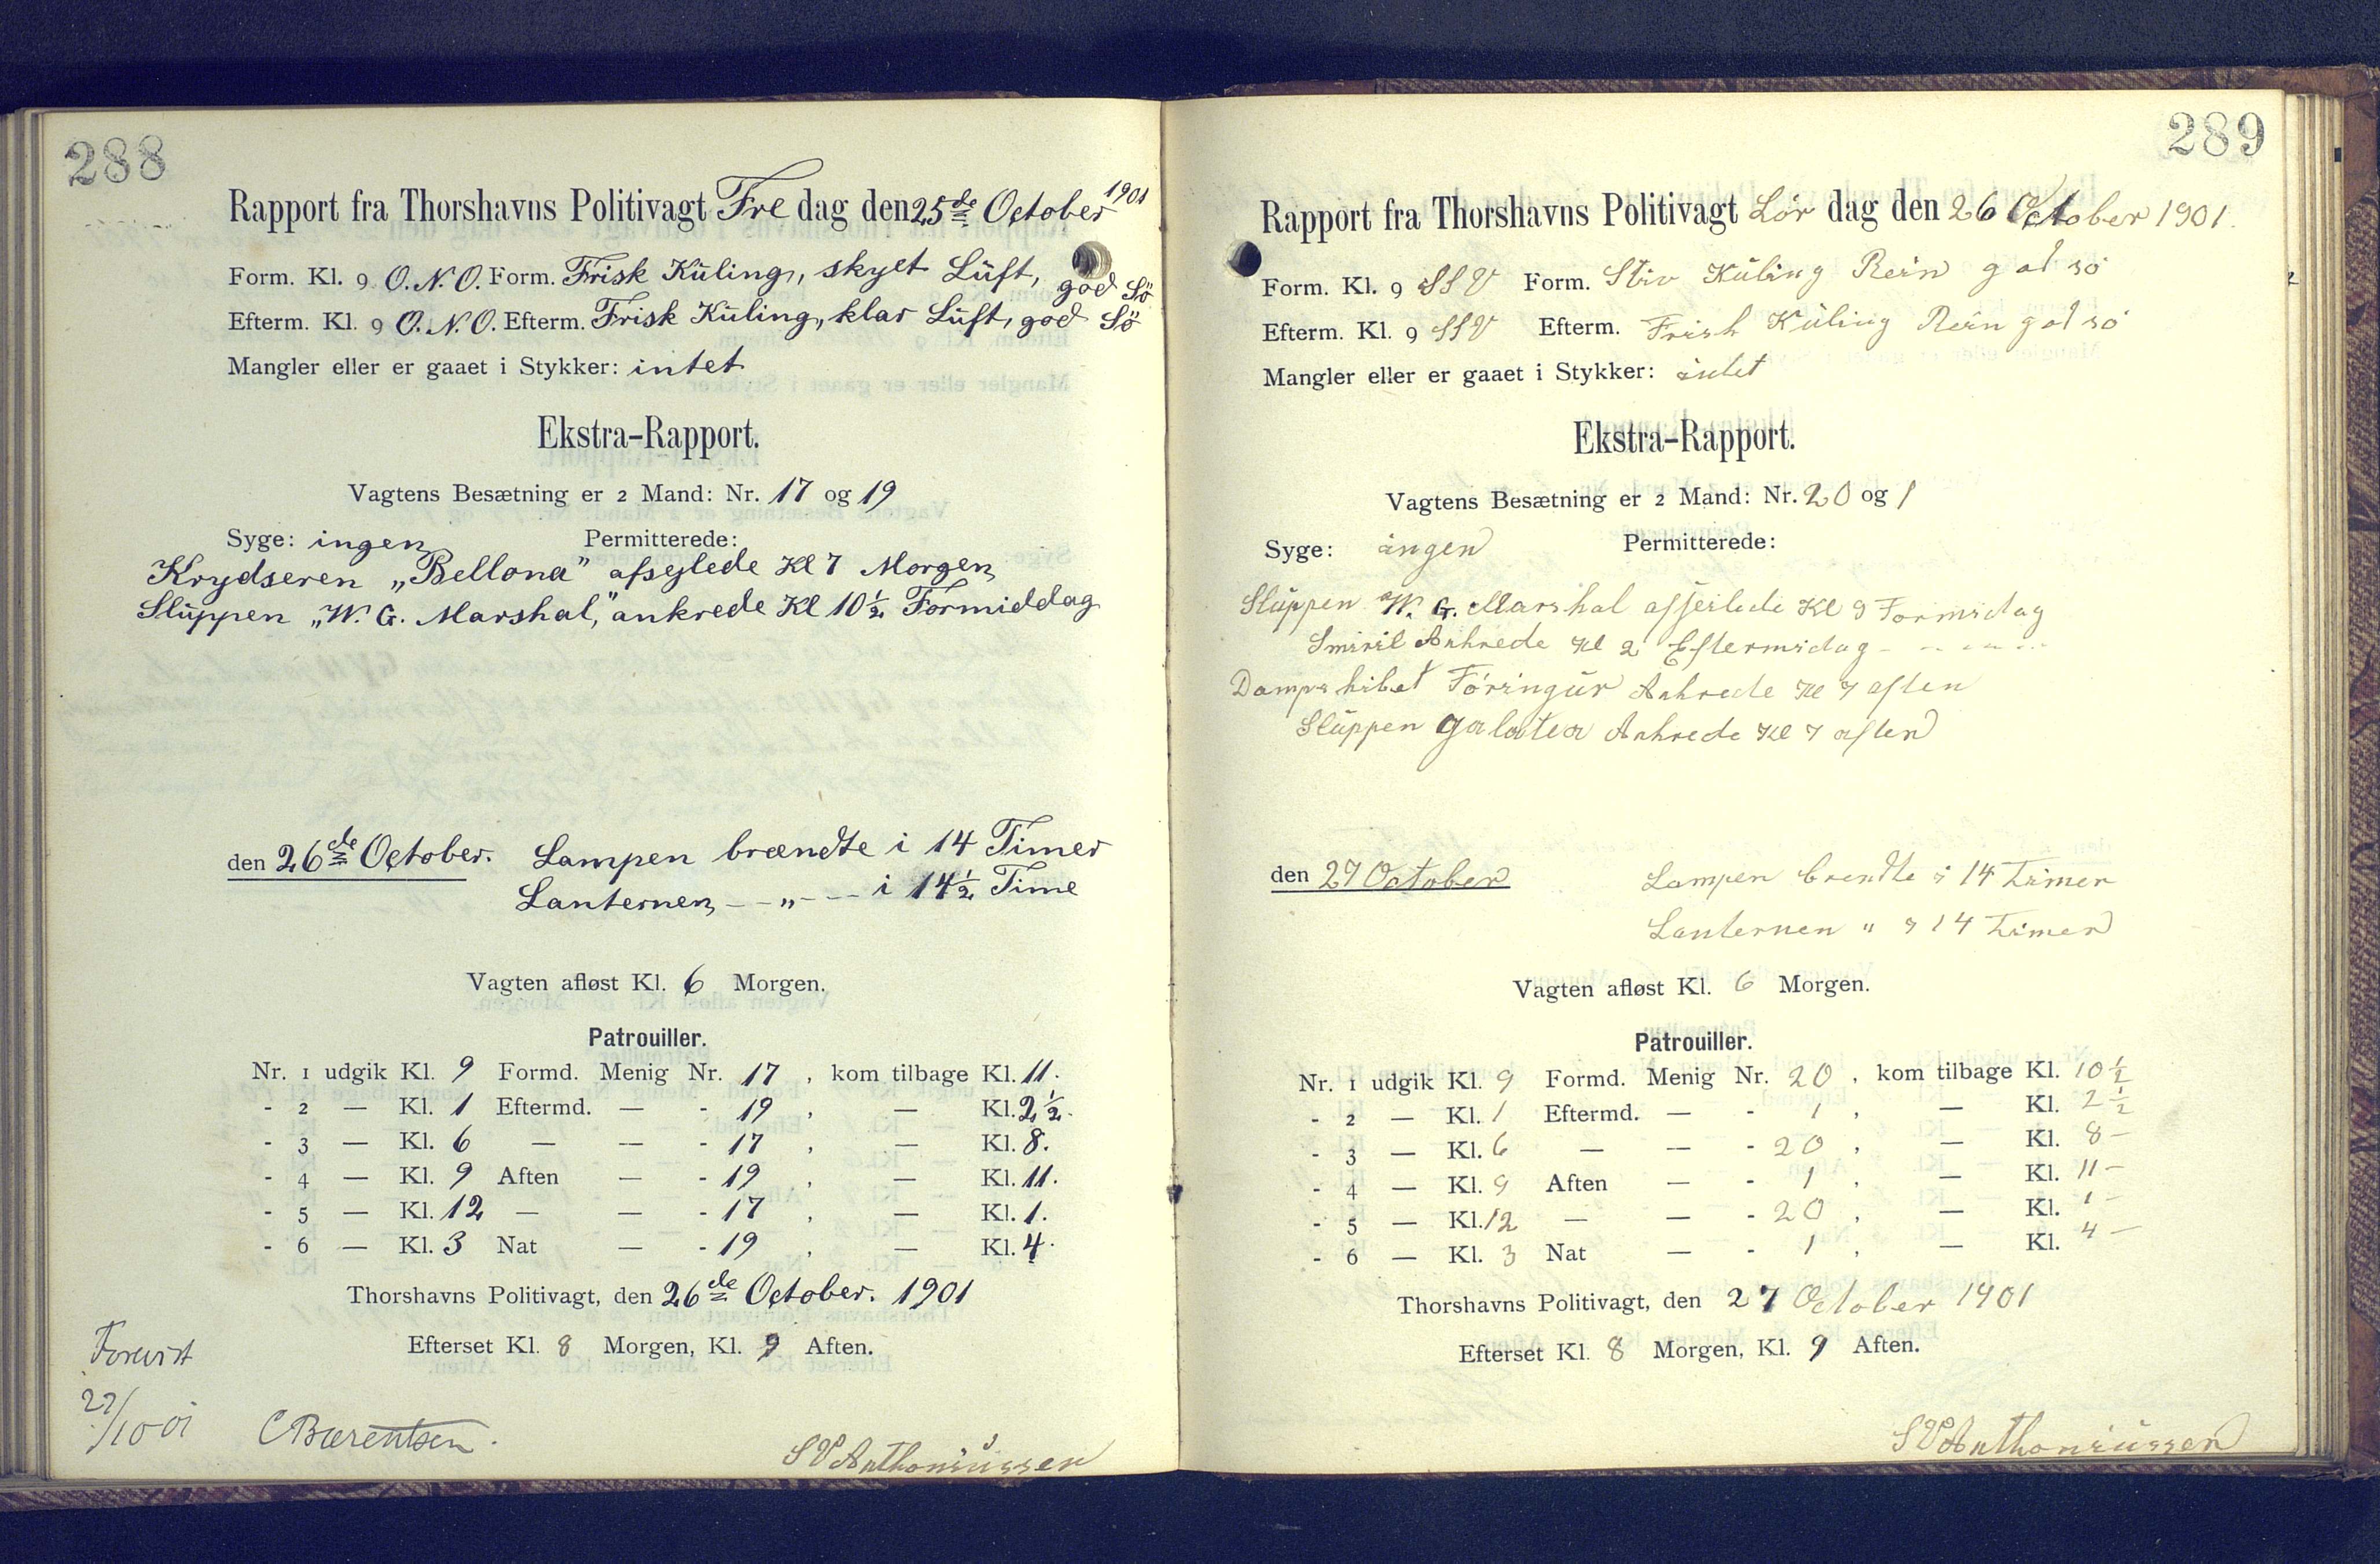 288
Rapport fra Thorshavns Politivagt Fre dag den 25de October 1901
Form. Kl. 9 O.N.O. Form. Frisk Kuling, skyet Luft, god Sö
Efterm. Kl. 9 O.N.O. Efterm. Frisk Kuling, klar Luft, god Sö
Mangler eller er gaaet i Stykker: intet
Ekstra-Rapport.
Vagtens Besætning er 2 Mand: Nr. 17 og 19
Syge: ingen Permitterede:
Krydseren „Bellona" afsejlede Kl 7 Morgen
Sluppen „W. G. Marshal," ankrede Kl 10½ Formiddag
den 26de October. Lampen brændte i 14 Timer
Lanternen — „ — i 14½ Time
Vagten afløst Kl. 6 Morgen.
Patrouiller.
Nr. 1 udgik Kl. 9 Formd. Menig Nr. 17, kom tilbage Kl. 11.
- 2 — Kl. 1 Eftermd. — - 19, — Kl. 2½.
- 3 — Kl. 6 — — - 17, — Kl. 8.
- 4 — Kl. 9 Aften — - 19, — Kl. 11.
- 5 — Kl. 12 — — - 17, — Kl. 1.
- 6 — Kl. 3 Nat — - 19, — Kl. 4.
Thorshavns Politivagt, den 26de October. 1901
Efterset Kl. 8 Morgen, Kl. 9 Aften.
Forevist
27/10 01 CBærentsen.
SVAnthoniussen
289
Rapport fra Thorshavns Politivagt Lör dag den 26 October 1901.
Form. Kl. 9 SSV Form. Stiv Kuling Rein god sö
Efterm. Kl. 9 SSV Efterm. Frish Kuling Rein god sö
Mangler eller er gaaet i Stykker: intet
Ekstra-Rapport.
Vagtens Besætning er 2 Mand: Nr. 20 og 1
Syge: ingen Permitterede:
Sluppen W. G. Marshal afseilede Kl 9 Formidag
Smiril Ankrede Kl 2 Eftermidag
Dampskibet Föringur Ankrede Kl 7 aften
Sluppen Galatea Ankrede Kl 7 aften
den 27 October Lampen brendte i 14 Timer
Lanternen " i 14 Timer
Vagten afløst Kl. 6 Morgen.
Patrouiller.
Nr. 1 udgik Kl. 9 Formd. Menig Nr. 20, kom tilbage Kl. 10½
- 2 — Kl. 1 Eftermd. — - 1, — Kl. 2½
- 3 — Kl. 6 — — - 20, — Kl. 8 —
- 4 — Kl. 9 Aften — - 1, — Kl. 11 —
- 5 — Kl. 12 — — - 20, — Kl. 1 —
- 6 — Kl. 3 Nat — - 1, — Kl. 4 —
Thorshavns Politivagt, den 27 October 1901
Efterset Kl. 8 Morgen, Kl. 9 Aften.
SVAnthoniussen